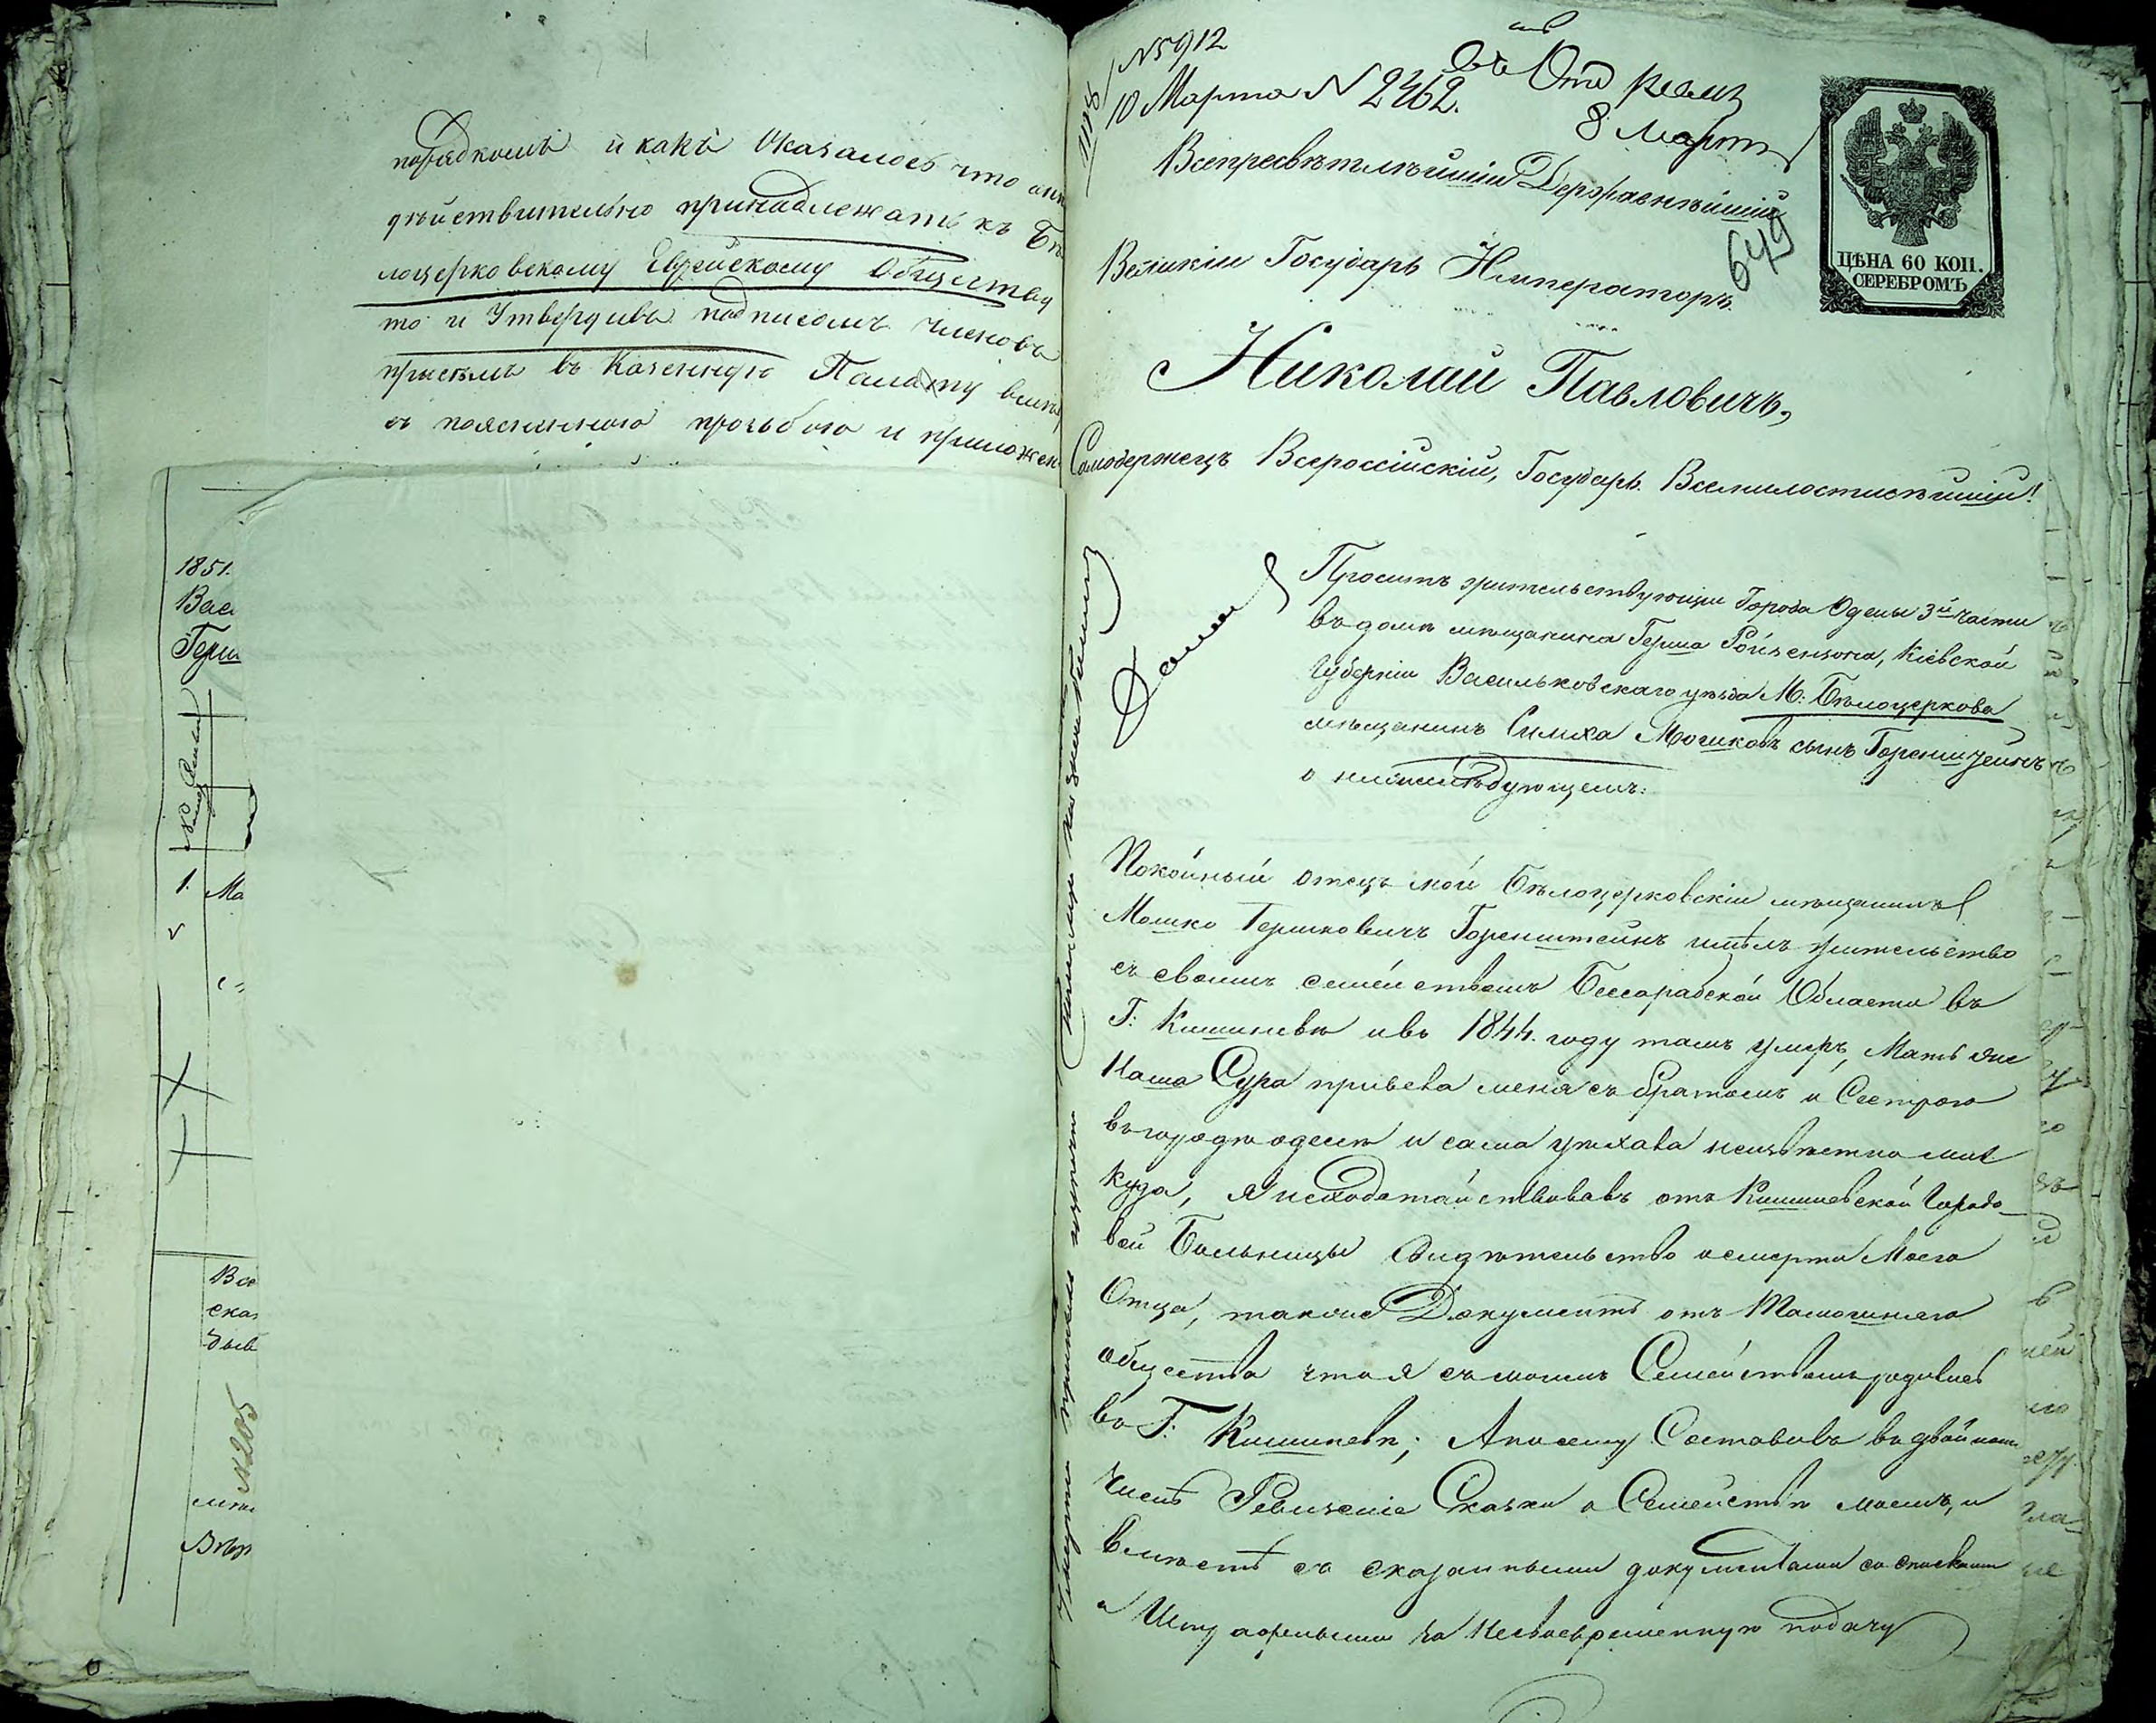 порядкомъ и какъ Оказалось что они
дѣйствительно принадлежатъ къ Бѣ
лоцерковскому Еврейскому Обществу
то и Утвердивъ подписомъ членовъ
въ Казенную Палату
съ прозьбою и приложен
1851.
Вас
Герш
1. Мо
Все
сказ
№205
Вѣр
№5912
10 Марта N 2462.
8 Марта
649
ЦѢНА 60 КОП.
СЕРЕБРОМЪ
Всепресвѣтлѣйшій Державнѣйшій
Великій Государь Императоръ
Николай Павловичъ,
Самодержецъ Всероссійскій, Государь Всемилостивѣйшій!
Проситъ жительствующій Города Одессы 3й части
въ домѣ мѣщанина Герша Ройзенцона, Кіевской
Губерніи Васильковскаго уѣзда М: Бѣлоцеркова
мѣщанинъ Симха Мошковъ сынъ
о нижеслѣдующемъ:
Покойный отецъ мой Бѣлоцерковскій мѣщанинъ
Мошко Гершковичъ Горенштейнъ имѣлъ жительство
съ своимъ семействомъ Бессарабской Области въ
Г: Кишиневѣ и въ 1844. году тамъ умеръ, Мать же
Наша Сура привезла меня съ братомъ и Сестрою
въ городъ одессу и сама уѣхала неизвѣстно мнѣ
куда, я исходатайствовавъ отъ Кишиневской Городо_
вой Больницы Свидѣтельство о смерти Моего
Отца, также Документъ отъ Тамошнего
общества что я съ моимъ Семействомъ родились
въ Г. Кишиневѣ; А посему Составивъ въ двойномъ
числѣ Ревизскіе Сказки о Семействѣ моемъ, и
вмѣстѣ съ сказанными документами
и за Несвоевременную подачу